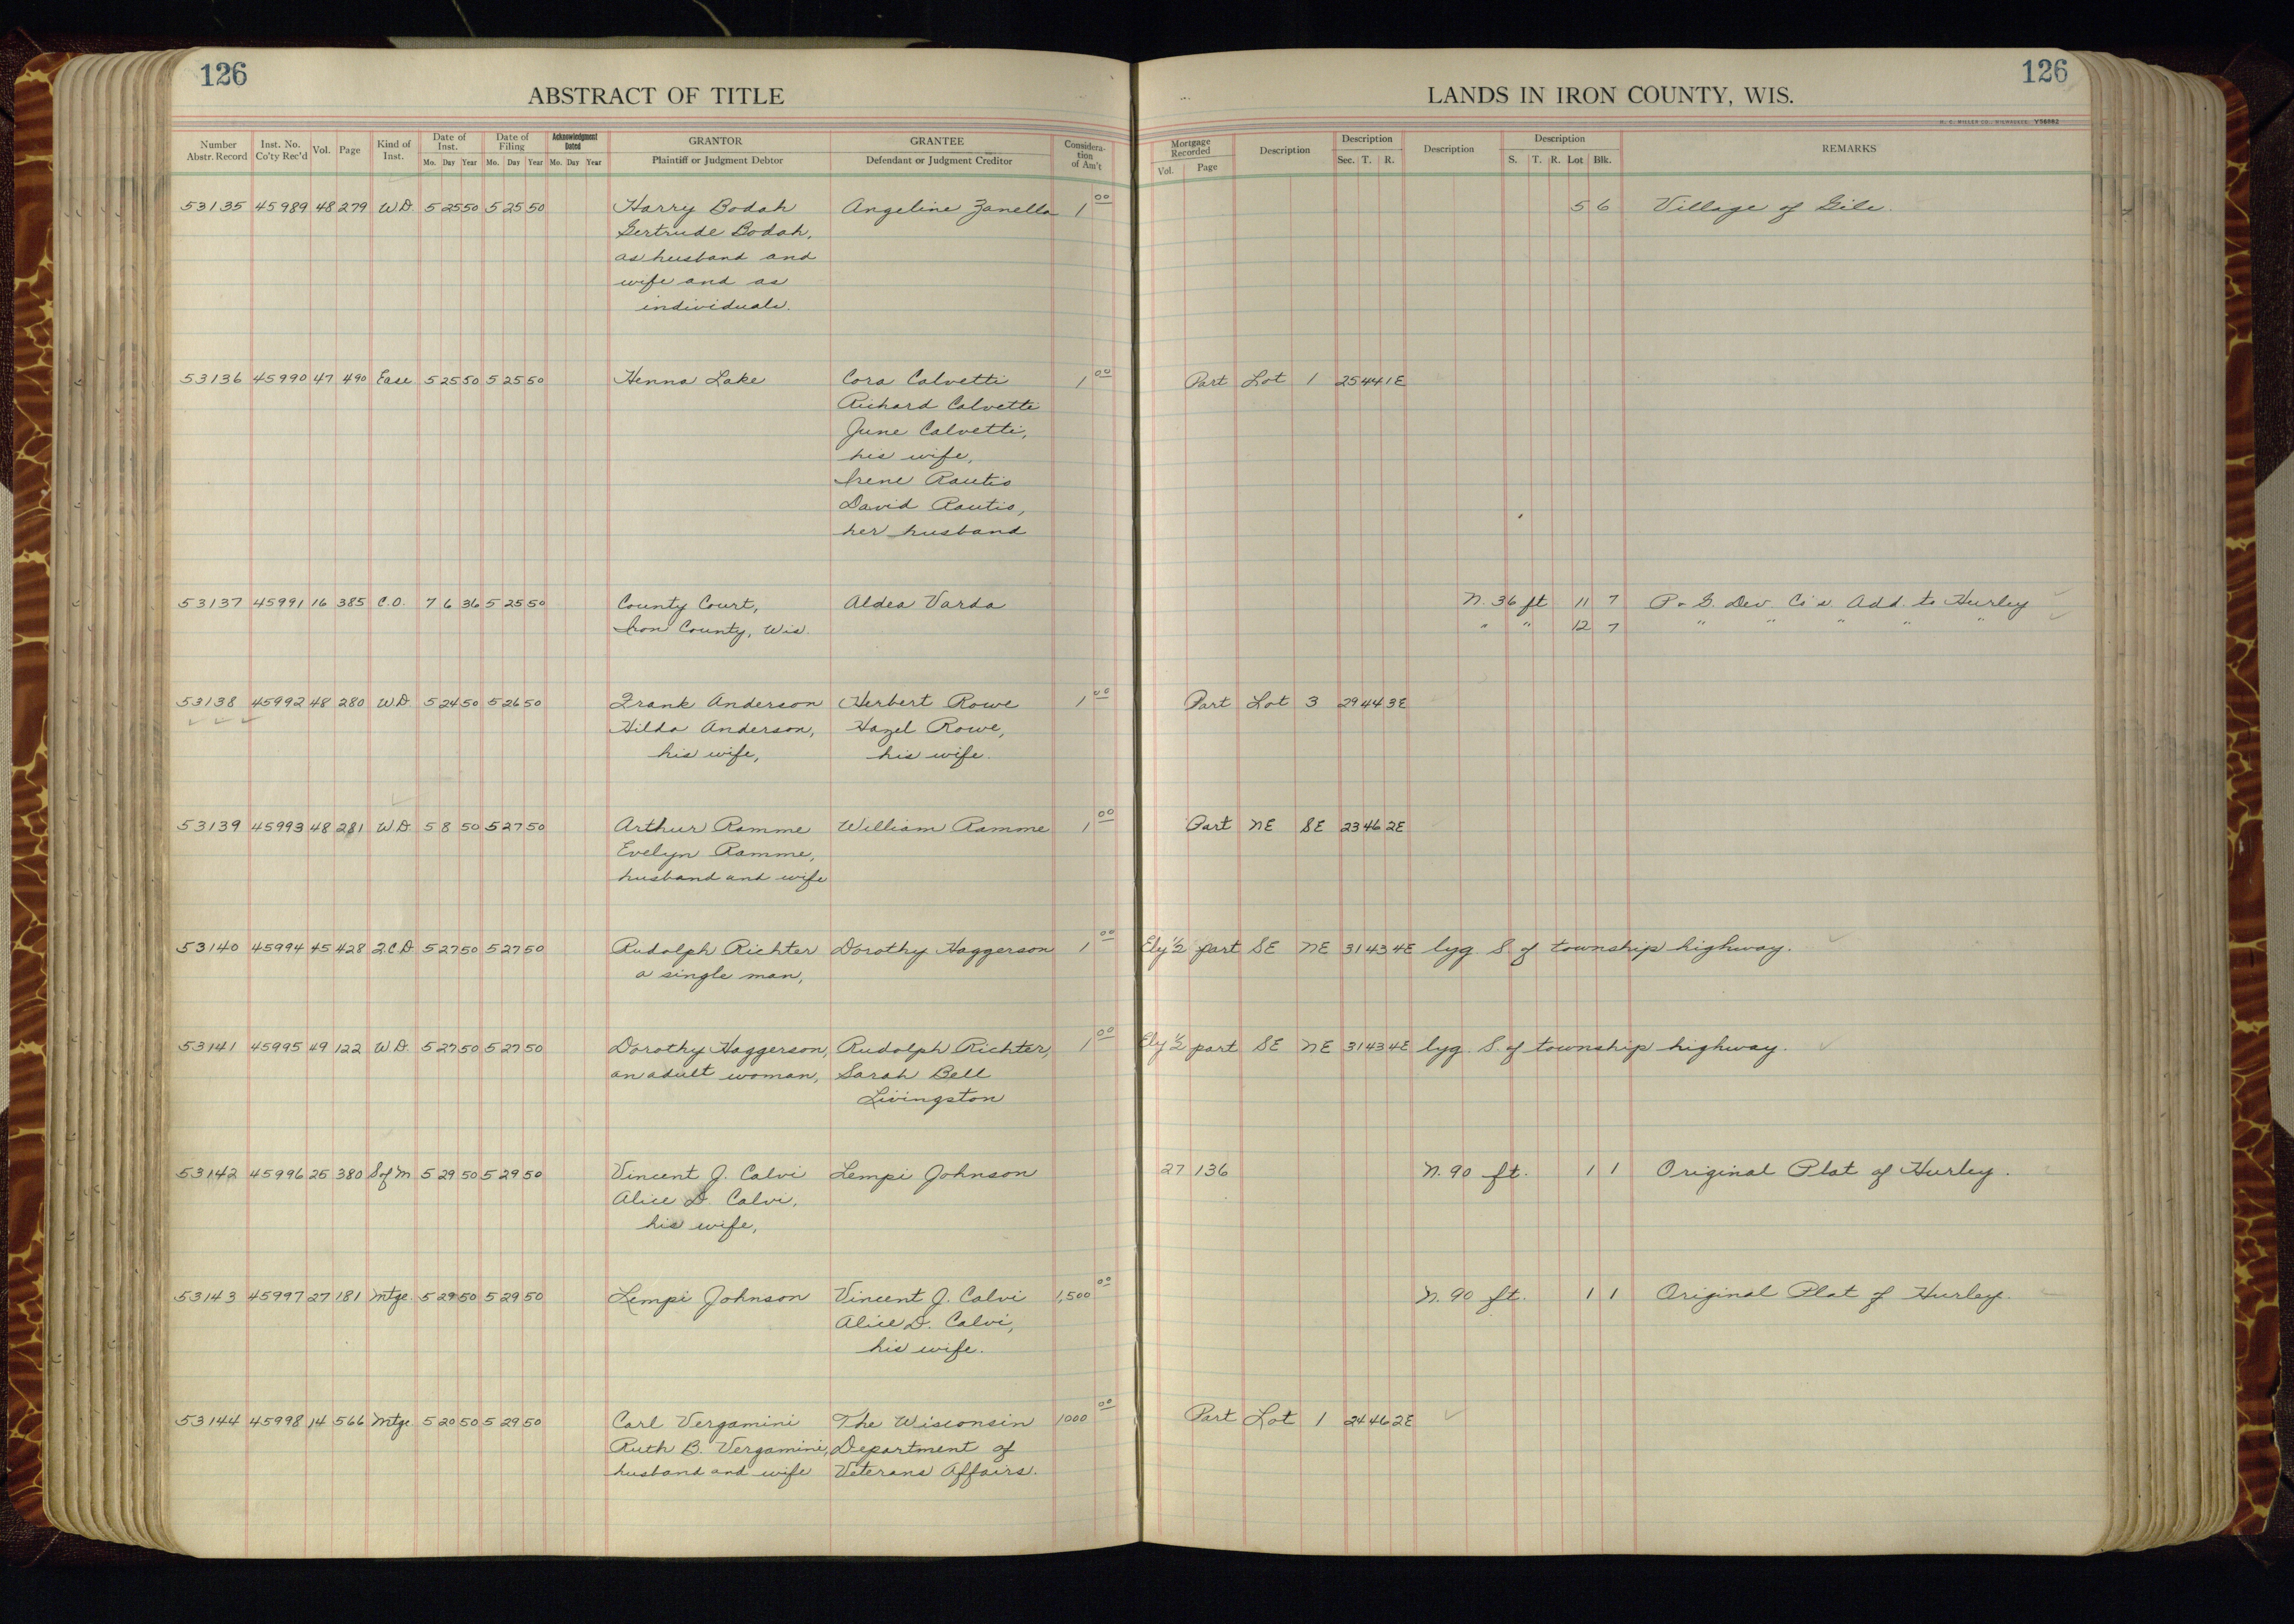 126
126
ABSTRACT OF TITLE
LANDS IN IRON COUNTY, WIS.
H. C. MILLER CO., MILWAUKEE V56082
Number Abstr. Record | Inst. No. Co'ty Rec'd | Vol. | Page | Kind of Inst. | Date of Inst. Mo. Day Year | Date of Filing Mo. Day Year | Acknowledgment Dated Mo. Day Year | GRANTOR Plaintiff or Judgment Debtor | GRANTEE Defendant or Judgment Creditor | Consideration of Am't | Mortgage Recorded Vol. Page | Description | Description Sec. T. R. | Description | Description S. T. R. Lot Blk. | REMARKS
53135 45989 48 279 W.D. 5 25 50 5 25 50 Harry Bodah Angeline Zanella 1 00 5 6 Village of Gile.
Gertrude Bodah,
as husband and
wife and as
individuals.
53136 45990 47 490 Ease 5 25 50 5 25 50 Henna Lake Cora Calvetti 1 00 Part Lot 1 25 44 1E
Richard Calvetti
June Calvetti,
his wife,
Irene Rautio
David Rautio,
her husband
53137 45991 16 385 C.O. 7 6 36 5 25 50 County Court, Aldea Varda N. 36 ft 11 7 P. & G. Dev. Co's. Add. to Hurley
Iron County, Wis. " " 12 7 " " " " "
53138 45992 48 280 W.D. 5 24 50 5 26 50 Frank Anderson Herbert Rowe 1 00 Part Lot 3 29 44 3E
Hilda Anderson, Hazel Rowe,
his wife, his wife.
53139 45993 48 281 W.D. 5 8 50 5 27 50 Arthur Ramme William Ramme 1 00 Part NE SE 23 46 2E
Evelyn Ramme,
husband and wife
53140 45994 45 428 Q.C.D. 5 27 50 5 27 50 Rudolph Richter Dorothy Haggerson 1 00 Ely 1/2 part SE NE 31 43 4E lyg S of township highway.
a single man,
53141 45995 49 122 W.D. 5 27 50 5 27 50 Dorothy Haggerson, Rudolph Richter, 1 00 Ely 1/2 part SE NE 31 43 4E lyg. S. of township highway.
an adult woman, Sarah Bell
Livingston
53142 45996 25 380 S of M 5 29 50 5 29 50 Vincent J. Calvi Lempi Johnson 27 136 N. 90 ft. 1 1 Original Plat of Hurley.
Alice D. Calvi,
his wife,
53143 45997 27 181 Mtge. 5 29 50 5 29 50 Lempi Johnson Vincent J. Calvi 1,500 00 N. 90 ft. 1 1 Original Plat of Hurley.
Alice D. Calvi,
his wife.
53144 45998 14 566 Mtge. 5 20 50 5 29 50 Carl Vergamini The Wisconsin 1000 00 Part Lot 1 24 46 2E
Ruth B. Vergamini, Department of
husband and wife Veterans Affairs.